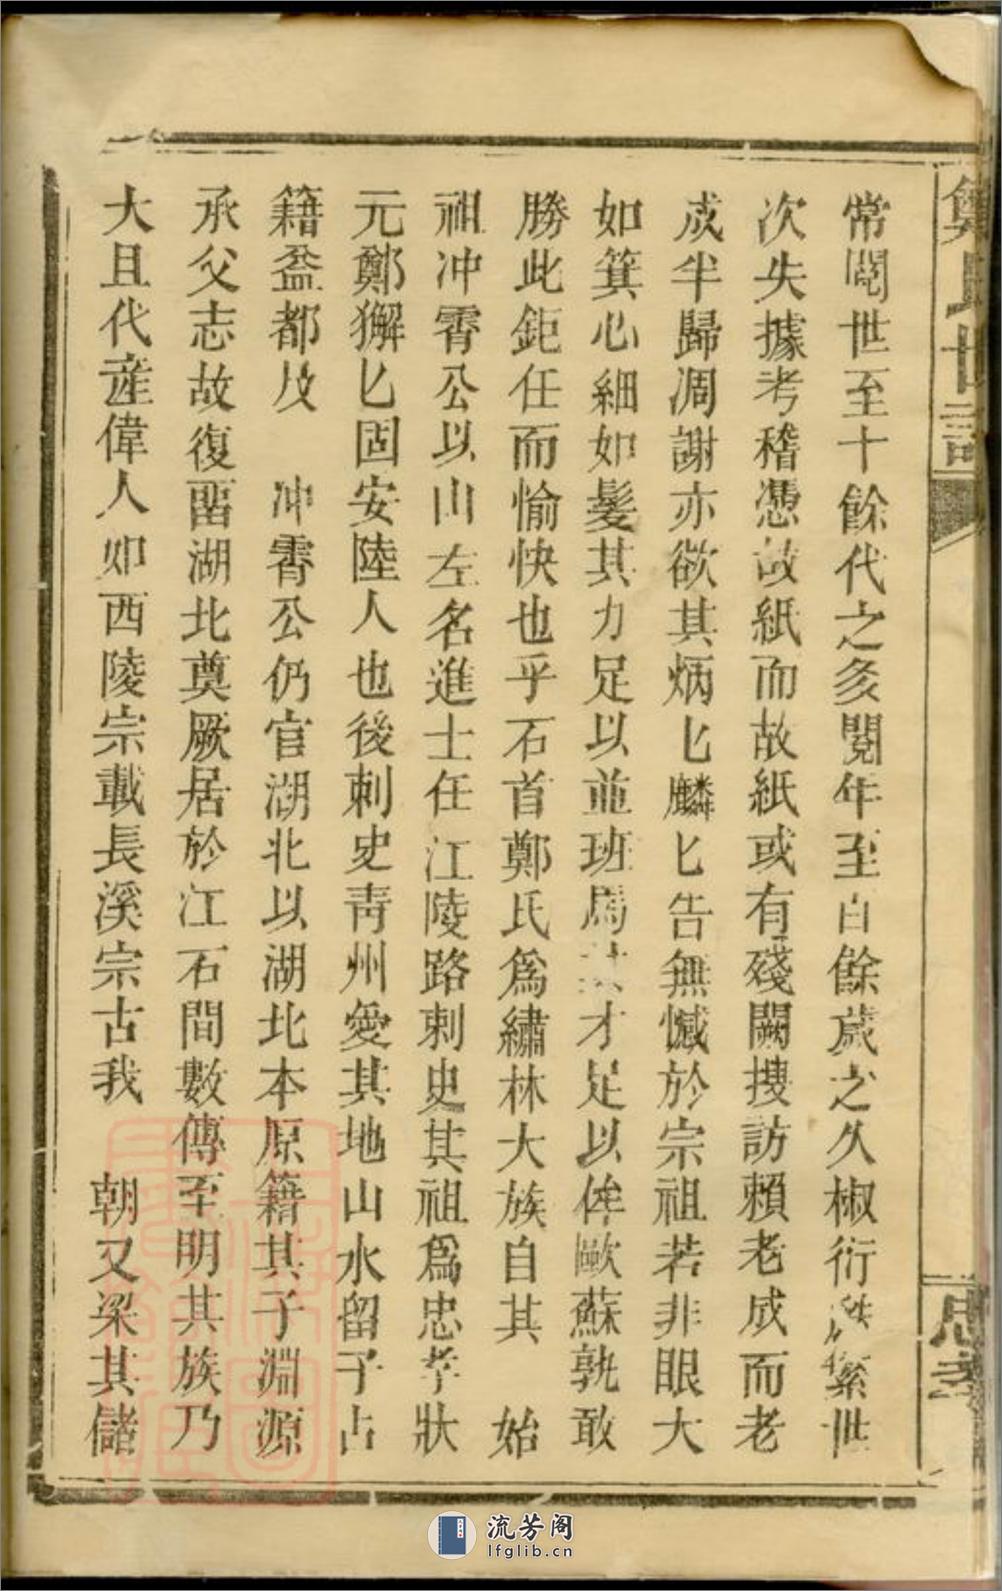 常閱世至十餘代之多閱年至百餘歲之久椒衍繁世
次失據考稽憑故紙而故紙或有殘闕捜訪賴老成而老
成半歸凋謝亦欲其炳匕麟匕告無憾於宗祖若非眼大
如箕心細如髮其力足以並班馬才足以侔歐蘇孰敢
勝此鉅任而愉快也乎石首鄭氏爲繡林大族自其　始
祖冲霄公以山左名進士任江陵路剌史其祖爲忠孝狀
元鄭獬匕固安陸人也後剌史靑州愛其地山水留子占
籍益都㕛　冲霄公仍官湖北以湖北本原籍其子淵源
承父志故復畱湖北奠厥居於江石間數傳至明其族乃
大且代產偉人如西陵宗載長溪宗古我　朝又梁其儲
流芳阁
lfglib.cn